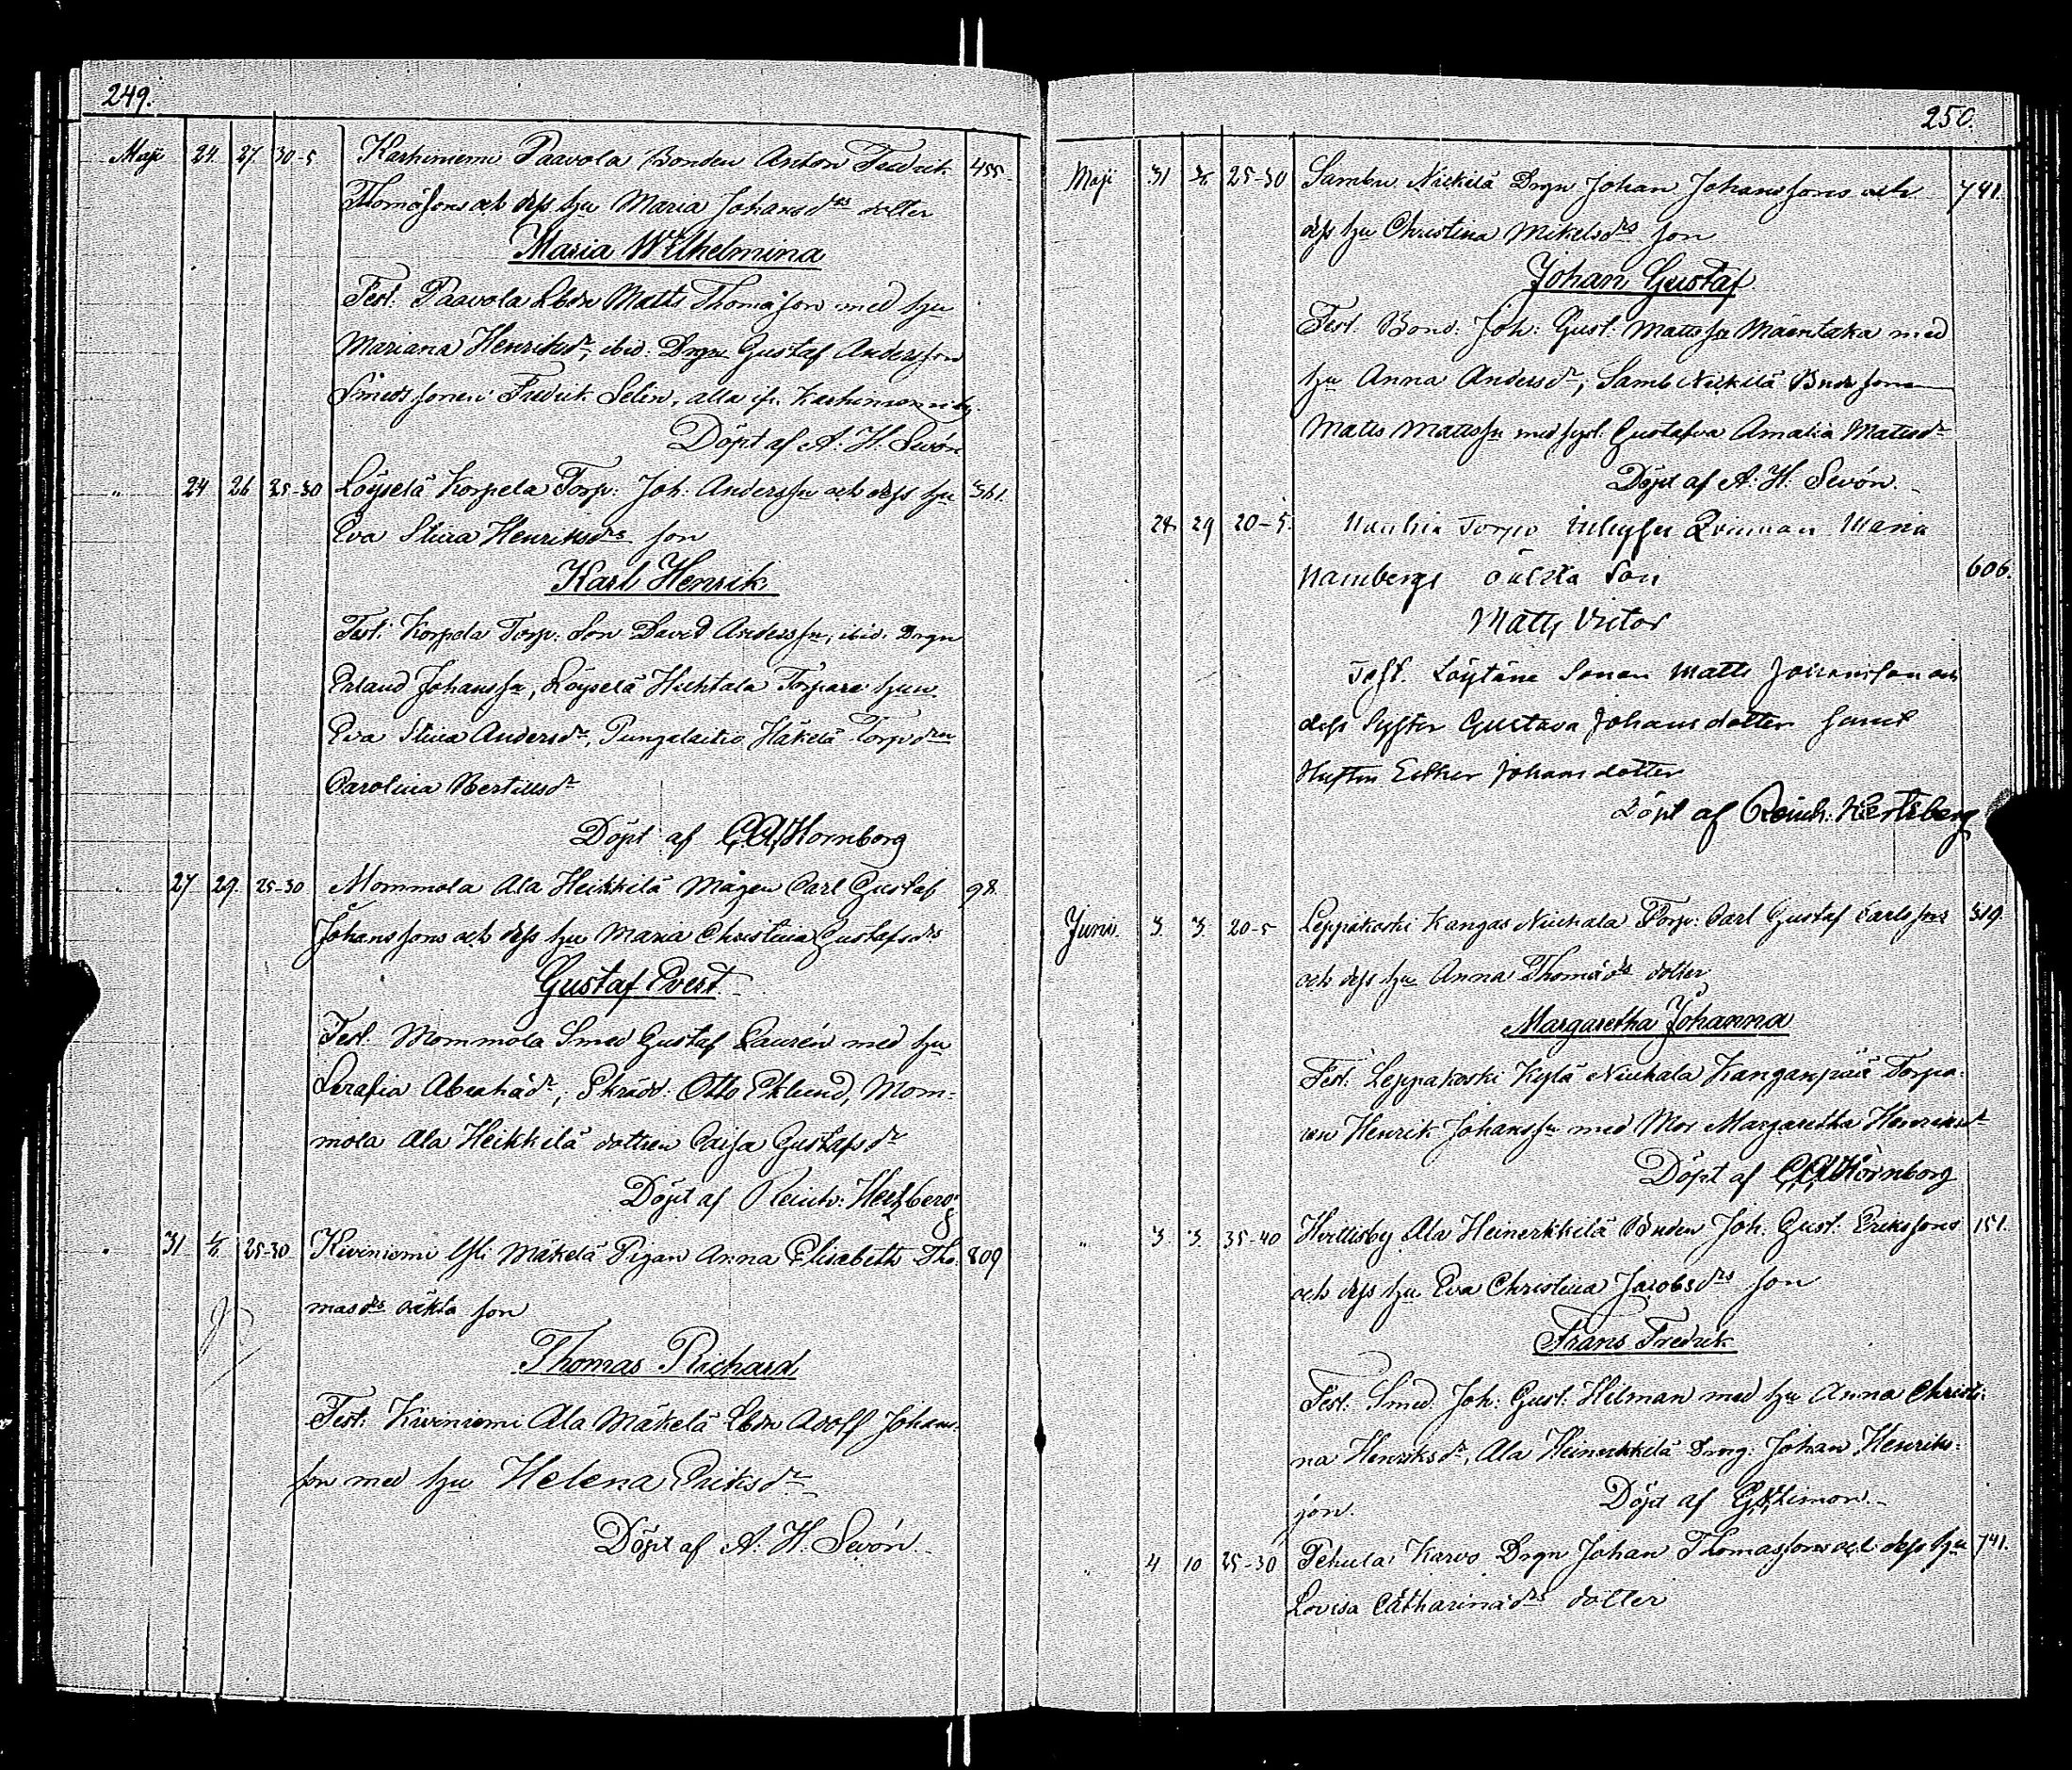 249.
Maji 24. 27. 30-5 Karhiniemi Paavola Bonden Anton Fredrik 455
Thomæsons och dess hu Maria Johansdrs dotter
Maria Wilhelmina
Test. Paavola Lbdn Matts Thomæson med hu
Mariana Henriksdr, ibid: Drgn Gustaf Andersson
Smeds sonen Fredrik Selin, alla ifr. Karhiniemi by.
Döpt af A. H. Sevón
" 24 26 25-30 Löyselä Korpela Torp: Joh. Anderssn och dess hu 361.
Eva Stina Henriksdrs son
Karl Henrik
Test: Korpela Torp: Son David Anderssn, ibid. Drgn
Erland Johanssn, Löyselä Huhtala Torpare hun
Eva Stina Andersdr, Pungalaitio Häkelä Torpdrn
Carolina Bertillsdr
Döpt af C.A. Hornborg
" 27 29. 25-30 Mommola Ala Heikkilä Mågen Carl Gustaf 98.
Johanssons och dess hu Maria Christina Gustafsdrs
Gustaf Evert
Test. Mommola Smed Gustaf Laurén med hu
Serafia Abrahádr, Skrädd: Otto Eklund, Mom-
mola Ala Heikkilä dottren Caisa Gustafsdr
Döpt af Reinh: Hertzberg
" 31. 25-30 Kiviniemi Yli Mäkelä Pigan Anna Elisabeth Tho- 809
masdrs oäkta son
Thomas Richard
Test: Kiviniemi Ala Mäkelä Lbdn Adolf Johans-
son med hu Helena Eriksdr
Döpt af A. H. Sevón
250.
Maji 31 25-30 Sambu Nickilä Drgn Johan Johanssons och 741.
dess hu Christina Mikelsdrs son
Johan Gustaf
Test. Bond: Joh: Gust: Mattssn Mäentaka med
hu Anna Andersdr, Samb Nickilä Bndesonen
Matts Mattssn med syst. Gustafva Amalia Mattsdr
Döpt af A. H. Sevón.
28 29 20-5. Torpp Inhyses Qvinnan Maria
Hambergs oäckta Son 606.
Matts Victor
Test. Löytäne Sonen Matts Johansson och
dess Syster Gustava Johansdotter samt
Hustrn Esther Johansdotter
Döpt af Reinh. Hertzberg
Junii. 3. 3. 20-5 Leppäkoski Kangas Niuhala Torp: Carl Gustaf Carlssons 319.
och dess hu Anna Thomædrs dotter
Margaretha Johanna
Test: Leppäkoski Kylä Niuhala Kanganpää Torpa-
ren Henrik Johanssn med Mor Margaretha Henriksdr
Döpt af C.A. Hornborg
" 3. 3. 35-40 Huittisby Ala Heinerkkelä Bonden Joh. Gust. Erikssons 151.
och dess hu Eva Christina Jacobsdrs son
Frans Fredrik
Test. Smed Joh: Gust: Hilman med hu Anna Christi-
na Henriksdr, Ala Heinerkkelä Drng: Johan Henriks-
son. Döpt af G. Limon.
" 4 10 25-30 Pehula Karvo Drgn Johan Thomassons och dess hu 741.
Lovisa Catharinadrs dotter